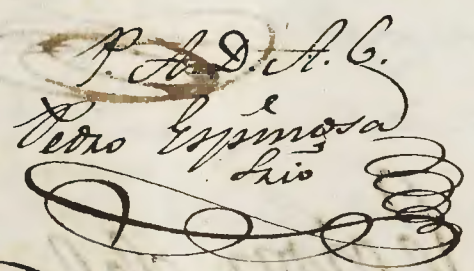 P. A. D. A. C.
Pedro Espinosa
Srio